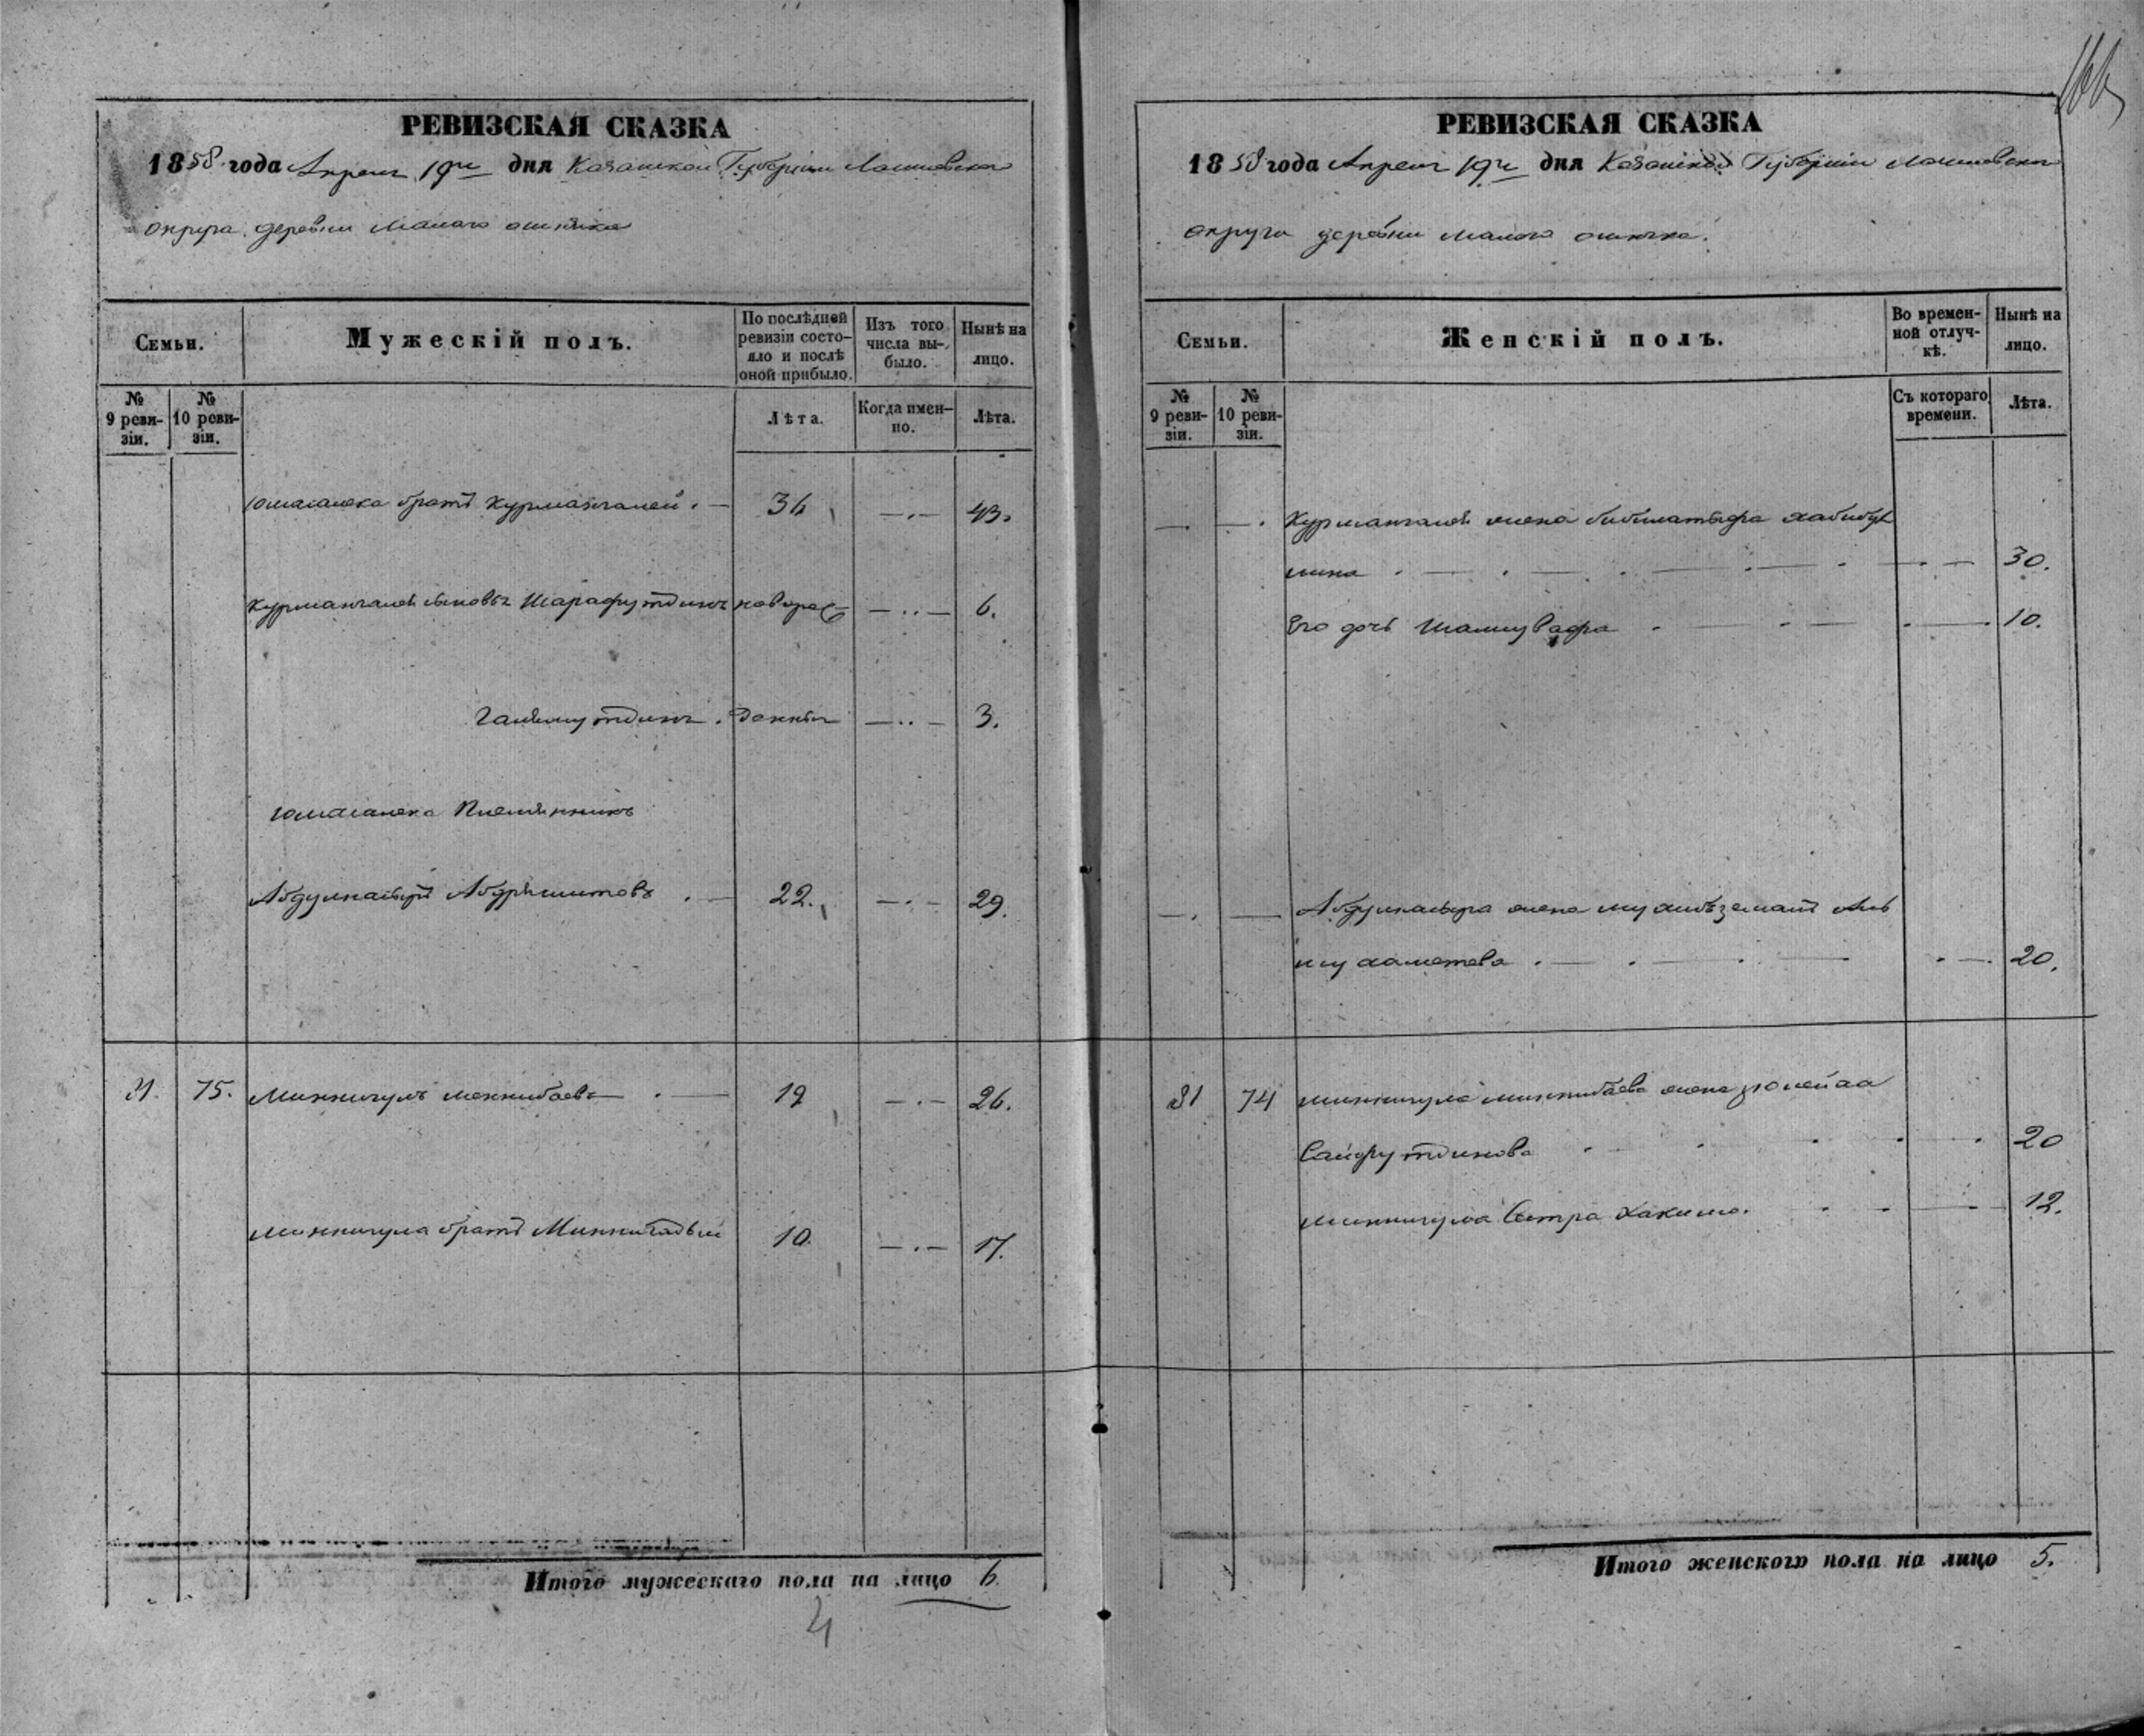 РЕВИЗСКАЯ СКАЗКА
1858 года Апреля 19го дня Казанской Губернии Лаишевского
округа деревни Малаго ошняка
Семьи.
Мужескій полъ.
По послѣдней ревизіи состояло и послѣ оной прибыло.
Изъ того числа выбыло.
Нынѣ на лицо.
№ 9 ревизіи.
№ 10 ревизіи.
Лѣта.
Когда именно.
Лѣта.
братъ Курмангалей. — 36 —.— 43.
Курмангалея сыновья Шарафутдинъ —..— 6.
—..— 3.
Племянникъ
Абдрашитовъ . — 22. —.— 29.
31. 75. Миннигулъ Меннибаевъ — . — 19 —.— 26.
Миннигула братъ 10. —.— 17.
Итого мужескаго пола на лицо 6.
4
РЕВИЗСКАЯ СКАЗКА
1858 года Апреля 19го дня Казанской Губернии Лаишевского
округа деревни Малаго ошняка.
Семьи.
Женскій полъ.
Во временной отлучкѣ.
Нынѣ на лицо.
№ 9 ревизіи.
№ 10 ревизіи.
Съ котораго времени.
Лѣта.
—. —. Курмангалея жена Хабибул
лина . — . — . — . — . — 30.
Его дочь . — . — . — 10.
—. — жена Аль
мухаметева . — . — . — . —. 20.
31 74 Миннигула Миннибаева жена
Сайфутдинова . — . . . . 20
Миннигула Сестра Хакима. . . — 12.
Итого женскаго пола на лицо 5.